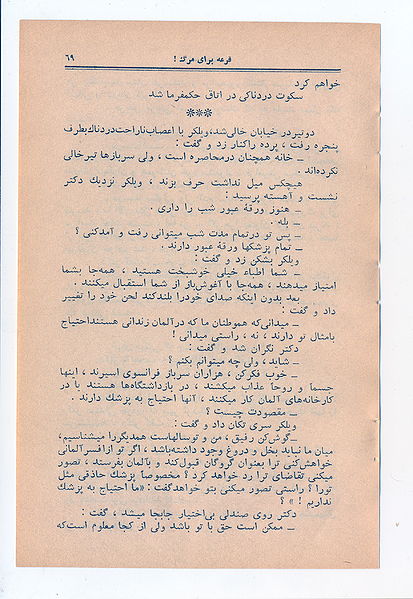 قرعه برای مرگ ! ۶۹
خواهم کرد
سکوت دردناکی در اتاق حکمفرما شد
***
دوتیردر خیابان خالی‌شد،ویلکر با اعصاب‌ناراحت‌دردناك‌بطرف
پنجره رفت ، پرده راکنار زد و گفت :
ــ خانه همچنان درمحاصره است ، ولی سربازها تیرخالی
نکرده‌اند .
هیچکس میل نداشت حرف بزند ، ویلکر نزدیك دکتر
نشست و آهسته پرسید :
ــ هنوز ورقهٔ عبور شب را داری .
ــ بله .
ــ پس تو درتمام مدت شب میتوانی رفت و آمدکنی ؟
ــ تمام پزشکها ورقهٔ عبور دارند .
ویلکر بشکن زد و گفت :
ــ شما اطباء خیلی خوشبخت هستید ، همه‌جا بشما
امتیاز میدهند ، همه‌جا با آغوش‌باز از شما استقبال میکنند .
بعد بدون اینکه صدای خودرا بلندکند لحن خود را تغییر
داد و گفت :
ــ میدانی‌که هموطنان ما که درآلمان زندانی هستنداحتیاج
بامثال تو دارند ، نه ، راستی میدانی !
دکتر نگران شد و گفت :
ــ شاید ، ولی چه میتوانم بکنم ؟
ــ خوب فکرکن ، هزاران سرباز فرانسوی اسیرند ، اینها
جسما و روحاً عذاب میکشند ، در بازداشتگاه‌ها هستند یا در
کارخانه‌های آلمان کار میکنند ، آنها احتیاج به پزشك دارند .
ــ مقصودت چیست ؟
ویلکر سری تکان داد و گفت :
ــ گوش‌کن رفیق ، من و توسالهاست همدیگررا میشناسیم،
میان ما نباید بخل و دروغ وجود داشته‌باشد ، اگر تو ازافسرآلمانی
خواهش‌کنی ترا بعنوان گروگان قبول‌کند و بآلمان بفرستد ، تصور
میکنی تقاضای ترا رد خواهد کرد ؟ مخصوصاً پزشك حاذقی مثل
تورا ؟ راستی تصور میکنی بتو خواهدگفت : «ما احتیاج به پزشك
نداریم ! » ؟
دکتر روی صندلی بی‌اختیار جابجا میشد ، گفت :
ــ ممکن است حق با تو باشد ولی از کجا معلوم است‌که